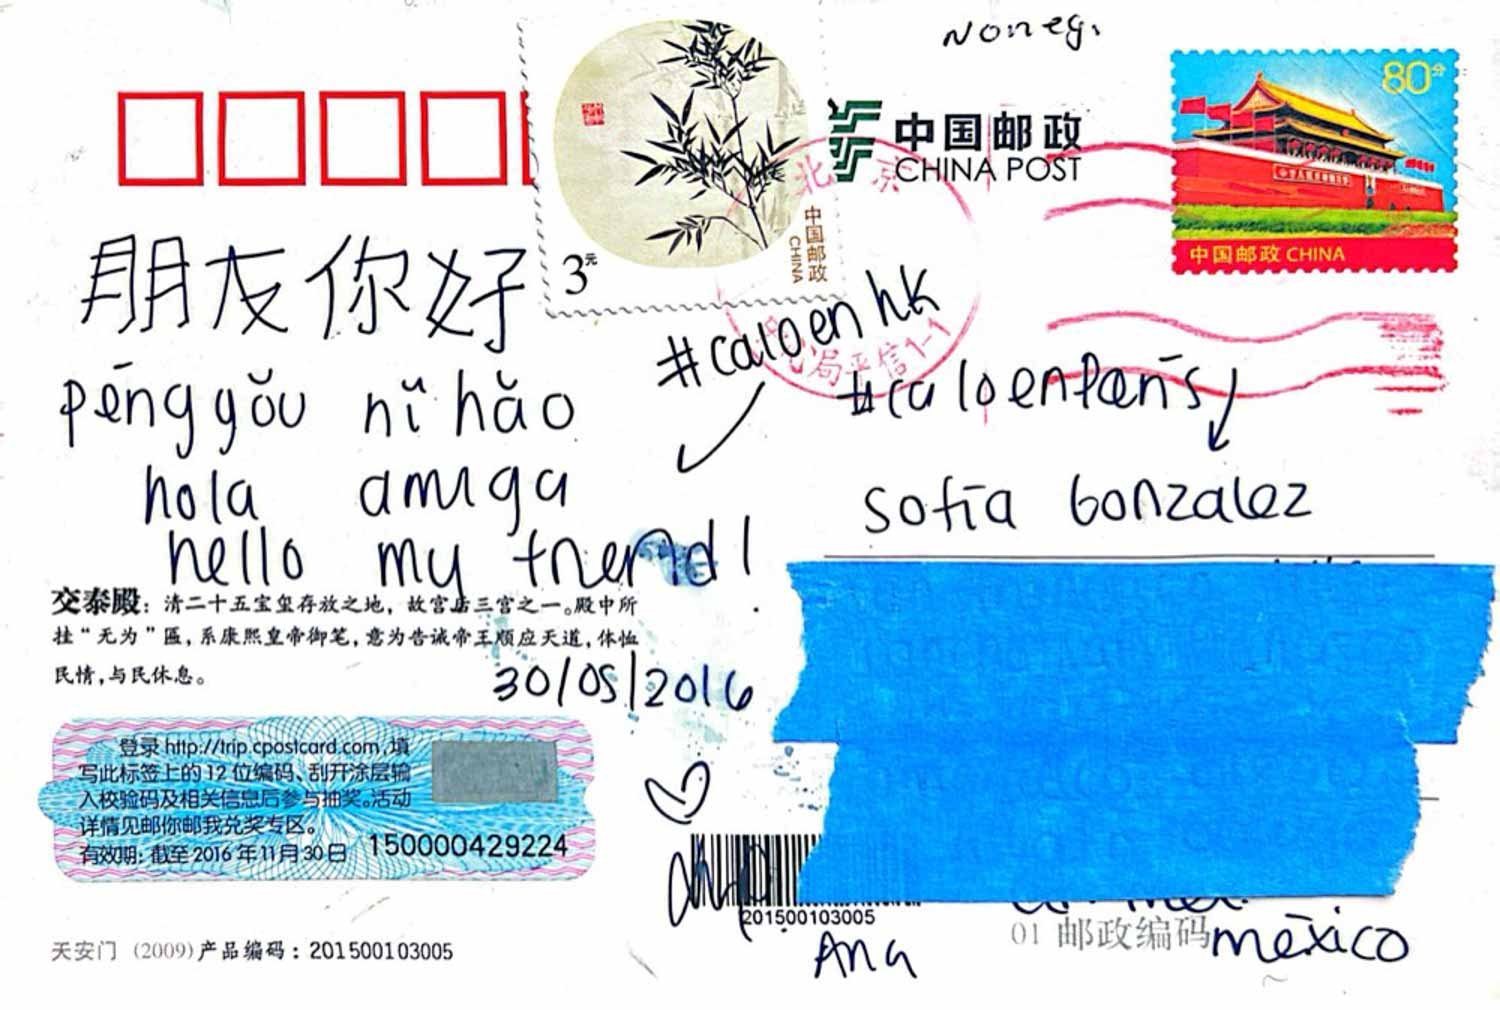 Noneg.
中国邮政
CHINA POST
80分
中国邮政 CHINA
3元
中国邮政
CHINA
北京
局平信1-1
朋友你好
péngyǒu nǐ hǎo
hola amiga
hello my friend!
#caloenhk
#caloenParis
Sofía Gonzalez
交泰殿：清二十五宝玺存放之地，故宫后三宫之一。殿中所
挂“无为”匾，系康熙皇帝御笔，意为告诫帝王顺应天道，体恤
民情，与民休息。
30/05/2016
登录 http://trip.cpostcard.com，填
写此标签上的 12 位编码、刮开涂层输
入校验码及相关信息后参与抽奖。活动
详情见邮你邮我兑奖专区。
有效期：截至 2016 年 11 月 30 日
150000429224
201500103005
Ana
01 邮政编码
méxico
天安门 (2009) 产品编码：201500103005